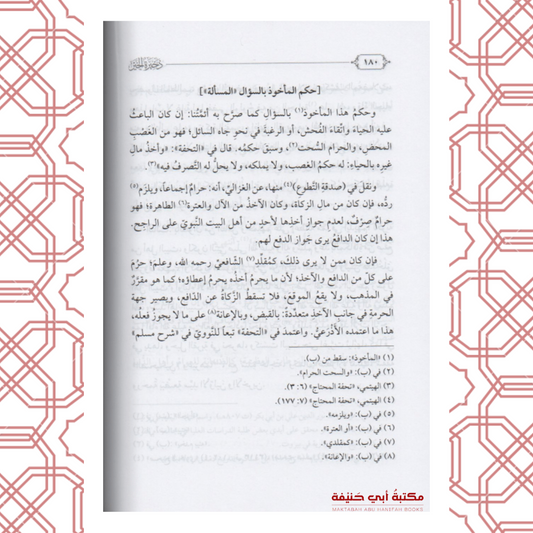 ١٨٠
[حكم المأخوذ بالسؤال «المسألة»]
وحكمُ هذا المأخوذ(١) بالسؤال كما صرَّح به أئمَّتُنا: إن كان الباعثُ
عليه الحياءَ واتِّقاءَ الفُحش، أو الرغبةَ في نحو جاه السائل؛ فهو من الغَصْبِ
المَحضِ، والحرام السُّحت(٢)، وسبق حكمُه. قال في «التحفة»: «وأخذُ مالِ
غيرِه بالحياءِ: له حكمُ الغصب، ولا يملكه، ولا يحلُّ له التصرفُ فيه»(٣).
ونقل في (صدقةِ التَّطوع)(٤) منها، عن الغزاليِّ، أنه: حرامٌ إجماعاً، ويلزم(٥)
ردُّه، فإن كان من مالِ الزكاة، وكان الآخذُ من الآلِ والعترة(٦) الطاهرة؛ فهو
حرامٌ صِرْفٌ، لعدمِ جوازِ أخذها لأحدٍ من أهل البيت النَّبويِّ على الراجح.
هذا إن كان الدافعُ يرى جَوازَ الدفع لهم.
فإن كان ممن لا يرى ذلك، كمُقلِّد(٧) الشافعيِّ رحمه الله، وعلم؛ حرُمَ
على كلٍّ من الدافع والآخذ؛ لأن ما يحرمُ أخذُه يحرمُ إعطاؤه؛ كما هو مقرَّرٌ
في المذهب، ولا يقعُ الموقعَ، فلا تسقطُ الزَّكاةُ عن الدَّافع، ويصير جهة
الحرمةِ في جانبِ الآخذِ متعدِّدةً: بالقبضِ، وبالإعانة(٨) على ما لا يجوزُ فعلُه،
هذا ما اعتمده الأذْرَعيُّ. واعتمدَ في «التحفة» تبعاً للنَّوويِّ في «شرح مسلم»
(١) «المأخوذ»: سقط من (ب).
(٢) في (ب): «والسحت الحرام».
(٣) الهيتمي، «تحفة المحتاج» (٦: ٣).
(٤) الهيتمي، «تحفة المحتاج» (٧: ١٧٧).
(٥) في (ب): «ويلزمه».
(٦) في (ب): «أو العترة».
(٧) في (ب): «كمقلدي».
(٨) في (ب): «والإعانة».
مكتبة أبي حنيفة
MAKTABAH ABU HANIFAH BOOKS